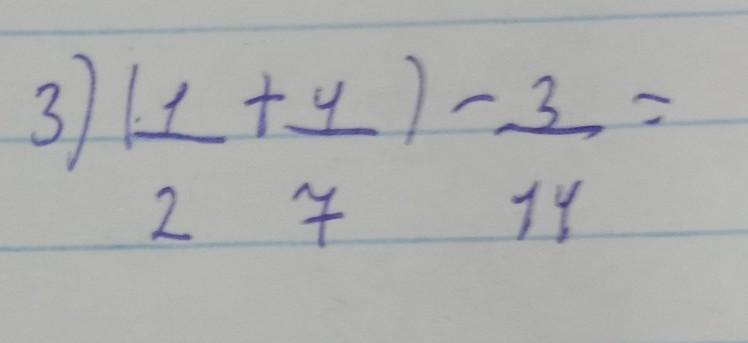 3) (1/2 + 4/7) - 3/14 =